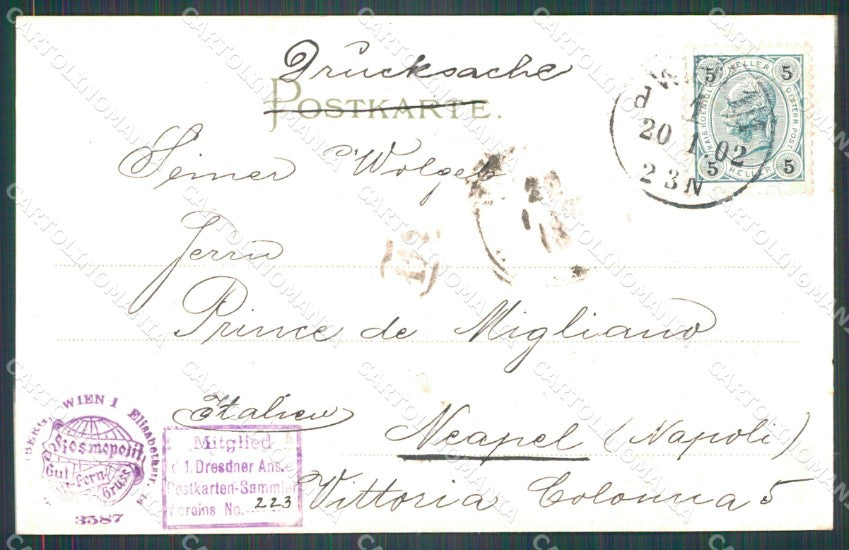 Drucksache
POSTKARTE.
5 HELLER 5
5 HELLER 5
WIEN
1
20 1 02
2 3 N
Seiner Wolgeb
Herrn
Prince de Migliano
Italien
Neapel (Napoli)
Vittoria Colonna 5
WIEN 1 Elisabethstr.
Kosmopolit
Gut Fern Gruss
3587
Mitglied
d. 1. Dresdner Ans.-
Postkarten-Sammler
Vereins No. 223
CARTOLINOMANIA